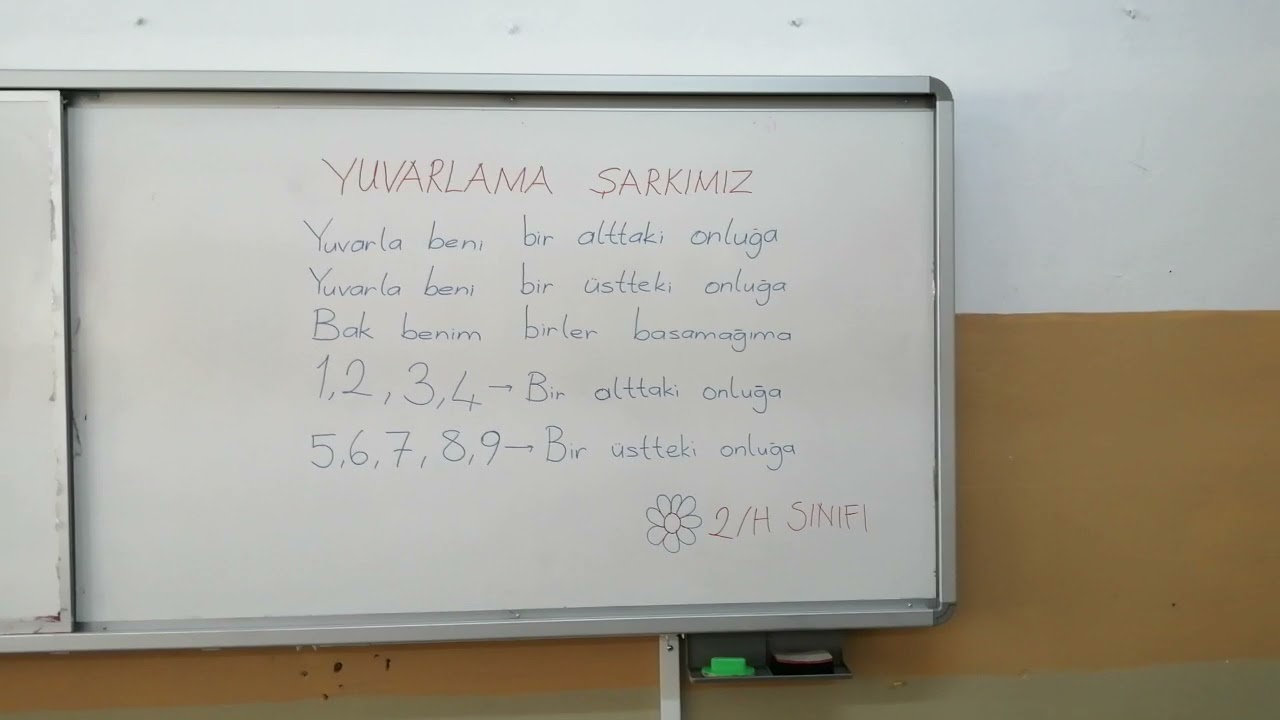 YUVARLAMA ŞARKIMIZ
Yuvarla beni bir alttaki onluğa
Yuvarla beni bir üstteki onluğa
Bak benim birler basamağıma
1,2,3,4→ Bir alttaki onluğa
5,6,7,8,9→ Bir üstteki onluğa
2/H SINIFI